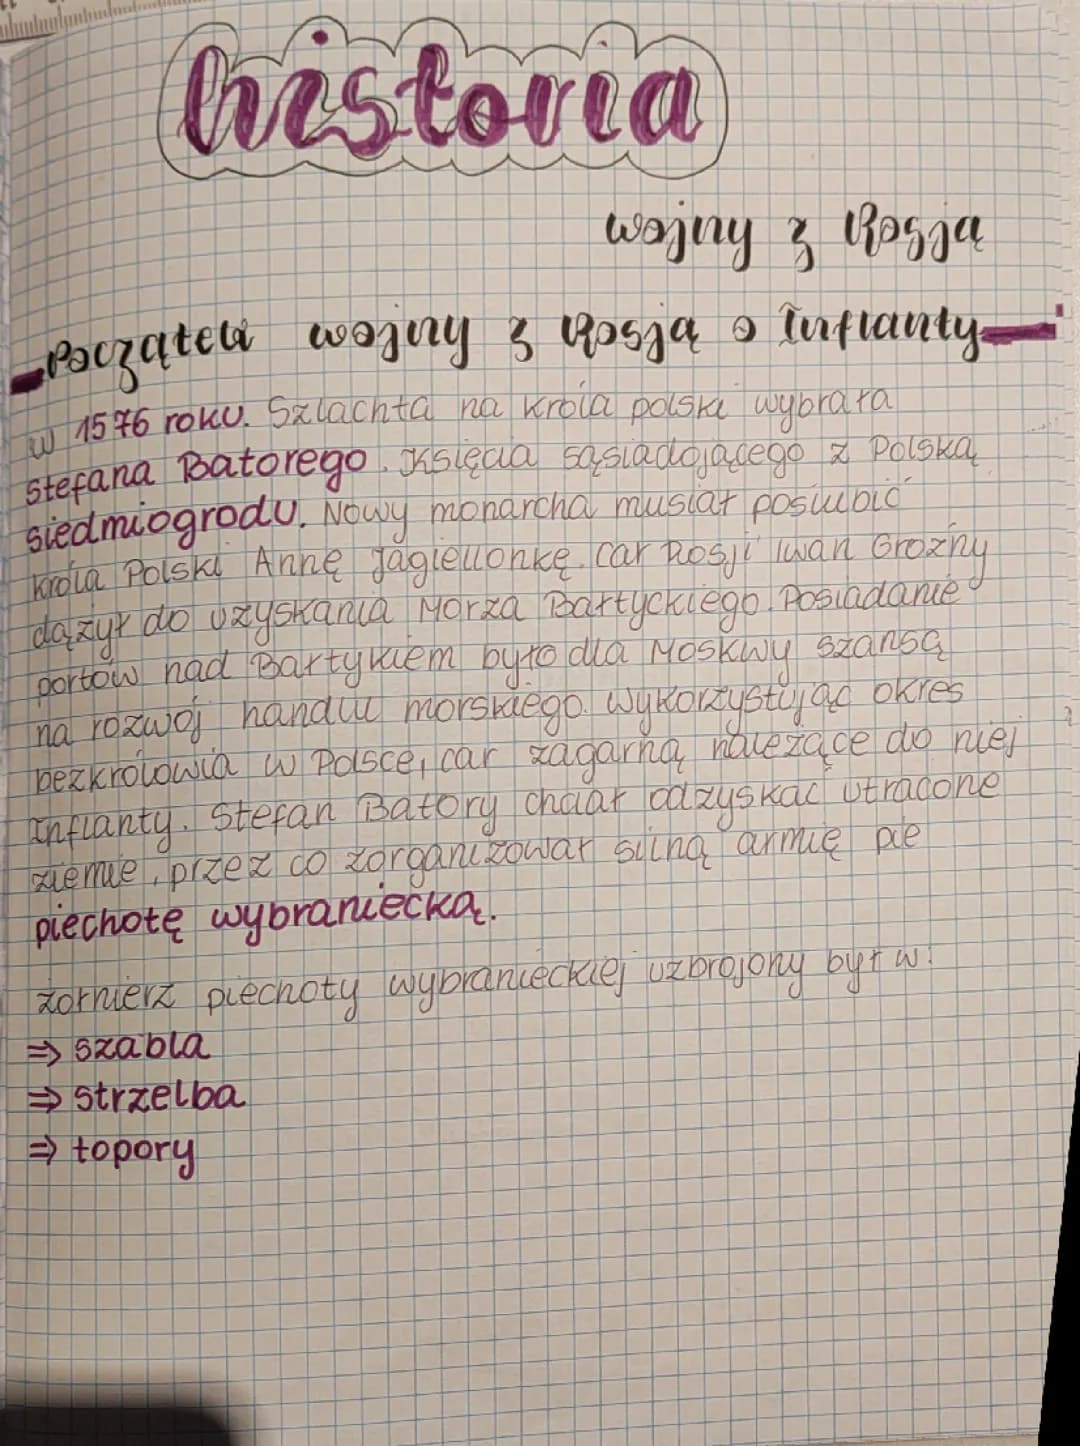 historia
wojny z Rosją
Początek wojny z Rosją o Inflanty
w 1576 roku. Szlachta na króla polski wybrała
Stefana Batorego. Księcia sąsiadojącego z Polską
siedmiogrodu. Nowy monarcha musiał poślubić
króla Polski Annę Jagiellonkę. Car Rosji Iwan Groźny
dążył do uzyskania Morza Bałtyckiego. Posiadanie
portów nad Bałtykiem było dla Moskwy szansą
na rozwój handlu morskiego. Wykorzystując okres
bezkrólowia w Polsce, car zagarną należące do niej
Inflanty. Stefan Batory chciał odzyskać utracone
ziemie, przez co zorganizował silną armię pie
piechotę wybraniecką.
żołnierz piechoty wybranieckiej uzbrojony był w:
⇒ szabla
⇒ strzelba
⇒ topory